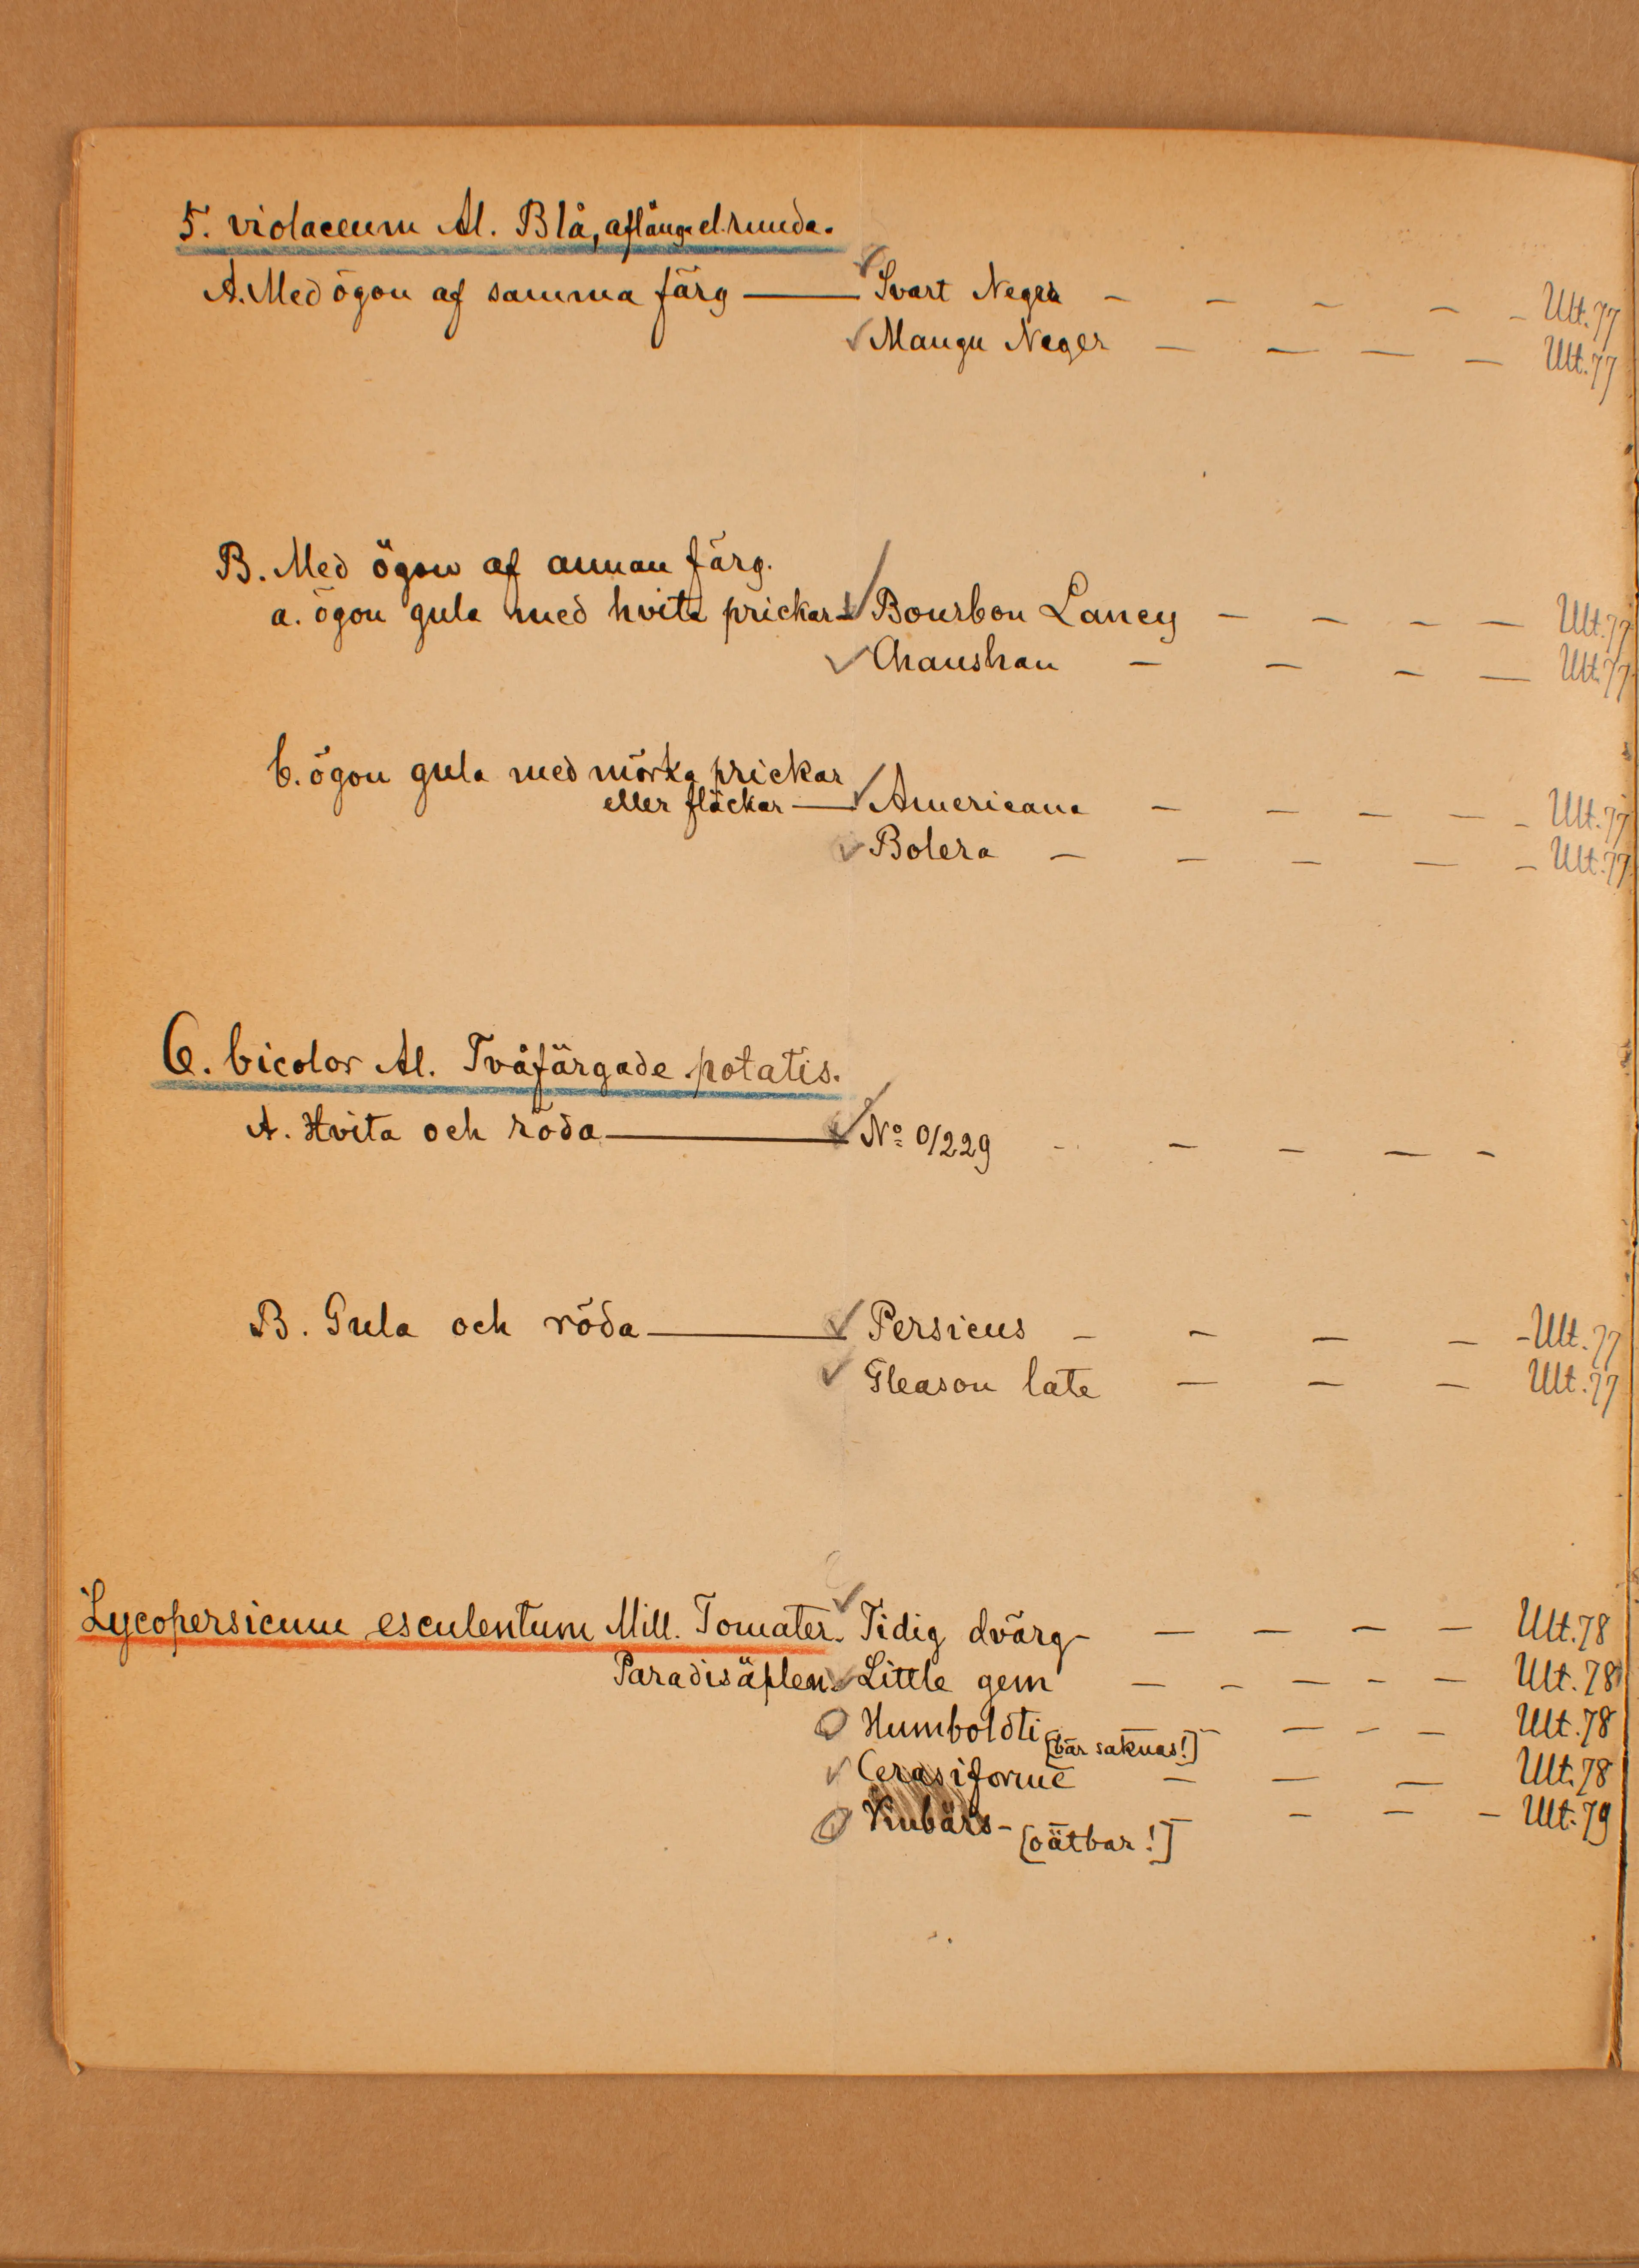 5. violaceum Al. Blå, aflånga el. runda.
A. Med ögon af samma färg — Svart Neger – – – – – Ult. 77
Mangu Neger – – – – Ult. 77
B. Med ögon af annan färg.
a. ögon gula med hvita prickar – Bourbon Lancy – – – – Ult. 77
Chaushau – – – – Ult. 77
b. ögon gula med mörka prickar
eller fläckar — Americana – – – – – Ult. 77
Bolera – – – – – Ult. 77
6. bicolor Al. Tvåfärgade potatis.
A. Hvita och röda — No 0/229 – – – – –
B. Gula och röda — Persicus – – – – – Ult. 77
Gleason late – – – Ult. 77
Lycopersicum esculentum Mill. Tomater. Tidig dvärg – – – – – Ult. 78
Paradisäplen. Little gem – – – – – Ult. 78
Humboldti [bär saknas!] – – – – Ult. 78
Cerasiforme – – – Ult. 78
Kubärs – [oätbar!] – – – – Ult. 79